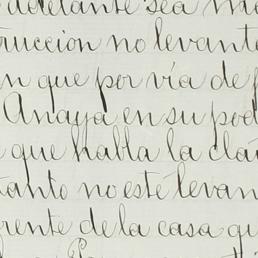 adelante sea
truccion no levante
n que por vía de
Anaya en su pod
que habla la clá
tanto no esté levan
frente de la casa qu